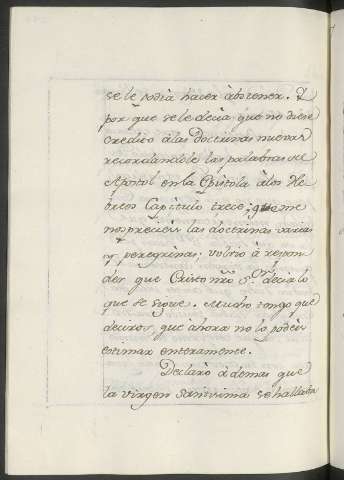 se le podia hacer àbstener. Y
por que se le decia que no diese
credito à las doctrinas nuevas
recordandole las palabras del
Apostol en la Epistola à los He
breos Capitulo trece; que me
nosprecièn las doctrinas varias
y peregrinas; volviò à respon
der que Cristo nrõ S.or decia lo
que se sigue. Mucho tengo que
deciros, que ahora no lo podeis
estimar enteramente.
Declarò àdemas que
la virgen santisima se hallaba